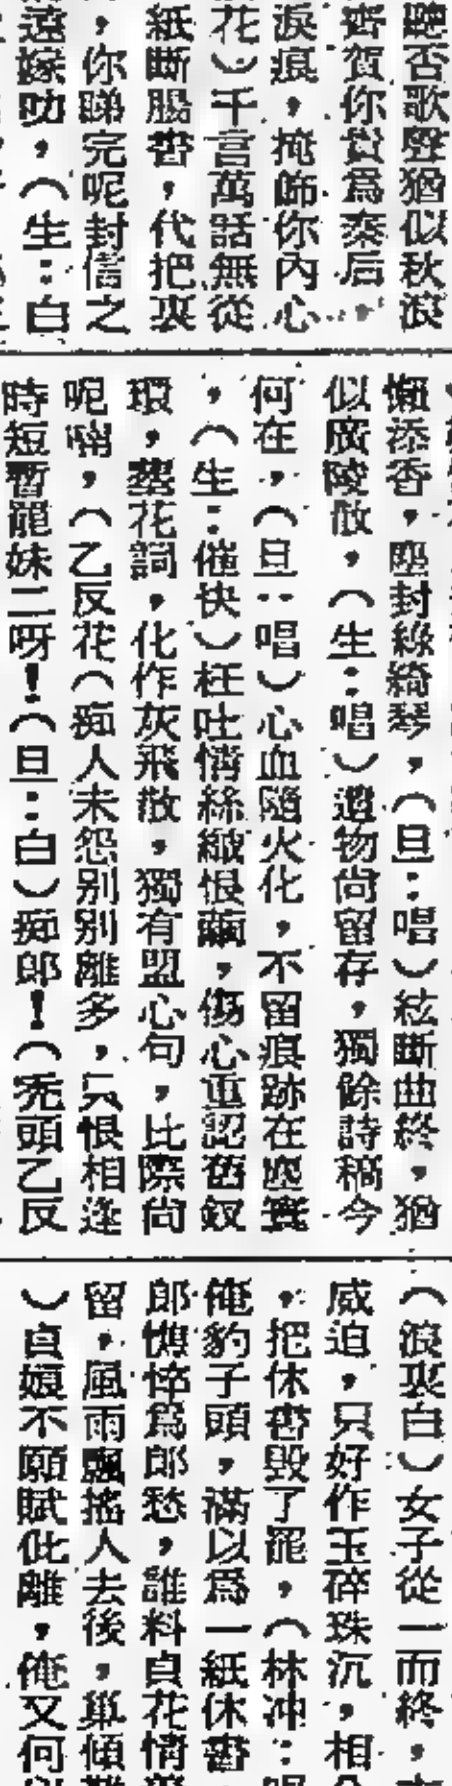 聽否歌聲猶似秋浪
賀你貴爲秦后
淚痕，掩飾你內心
花）千言萬話無從
紙斷腸書，代把衷
，你睇完呢封信之
遠嫁叻，（生：白
懶添香，塵封綠綺琴，（旦：唱）絃斷曲終，猶
似廣陵散，（生：唱）遺物尚留存，獨餘詩稿今
何在，（旦：唱）心血隨火化，不留痕跡在塵寰
，（生：催快）枉吐情絲緻恨繭，傷心重認舊釵
環，葬花詞，化作灰飛散，獨有盟心句，比際尚
呢喃，（乙反花（痴人未怨别别離多，只恨相逢
時短暫龍妹二呀！（旦：白）痴郎！（禿頭乙反
（浪裏白）女子從一而終，
威迫，只好作玉碎珠沉，相
，把休書毀了罷，（林冲：
俺豹子頭，滿以爲一紙休書，
郎憔悴爲郎愁，誰料貞花情
留，風雨飄搖人去後，巢傾
）貞娘不願賦仳離，俺又何